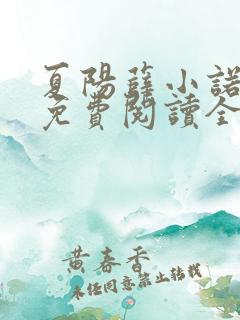 夏陽薛小諾
免費閱讀全
黃春香
未經同意禁止轉載